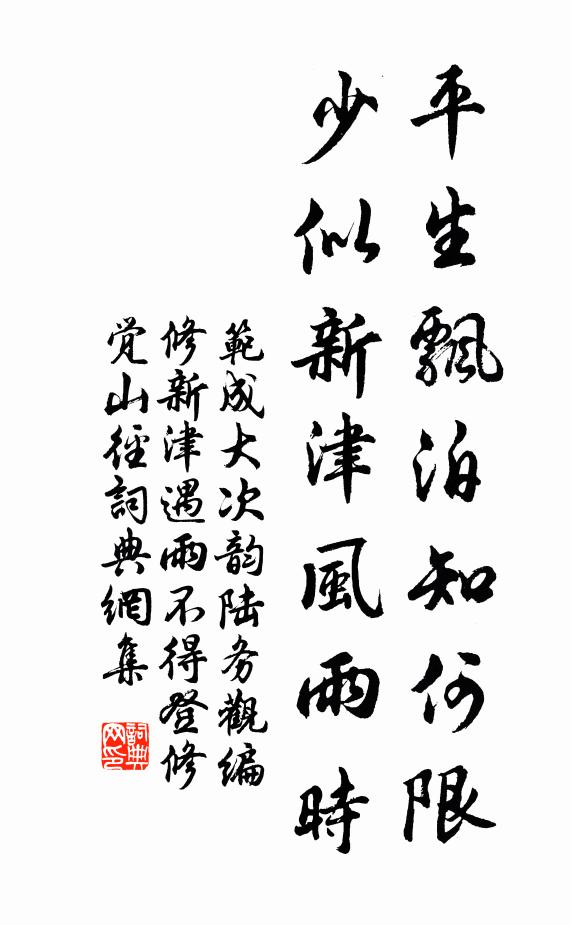 平生飄泊知何限
少似新津風雨時
範成大次韵陆务觀編
修新津遇雨不得登修
觉山徑詞典網集
詞典网印